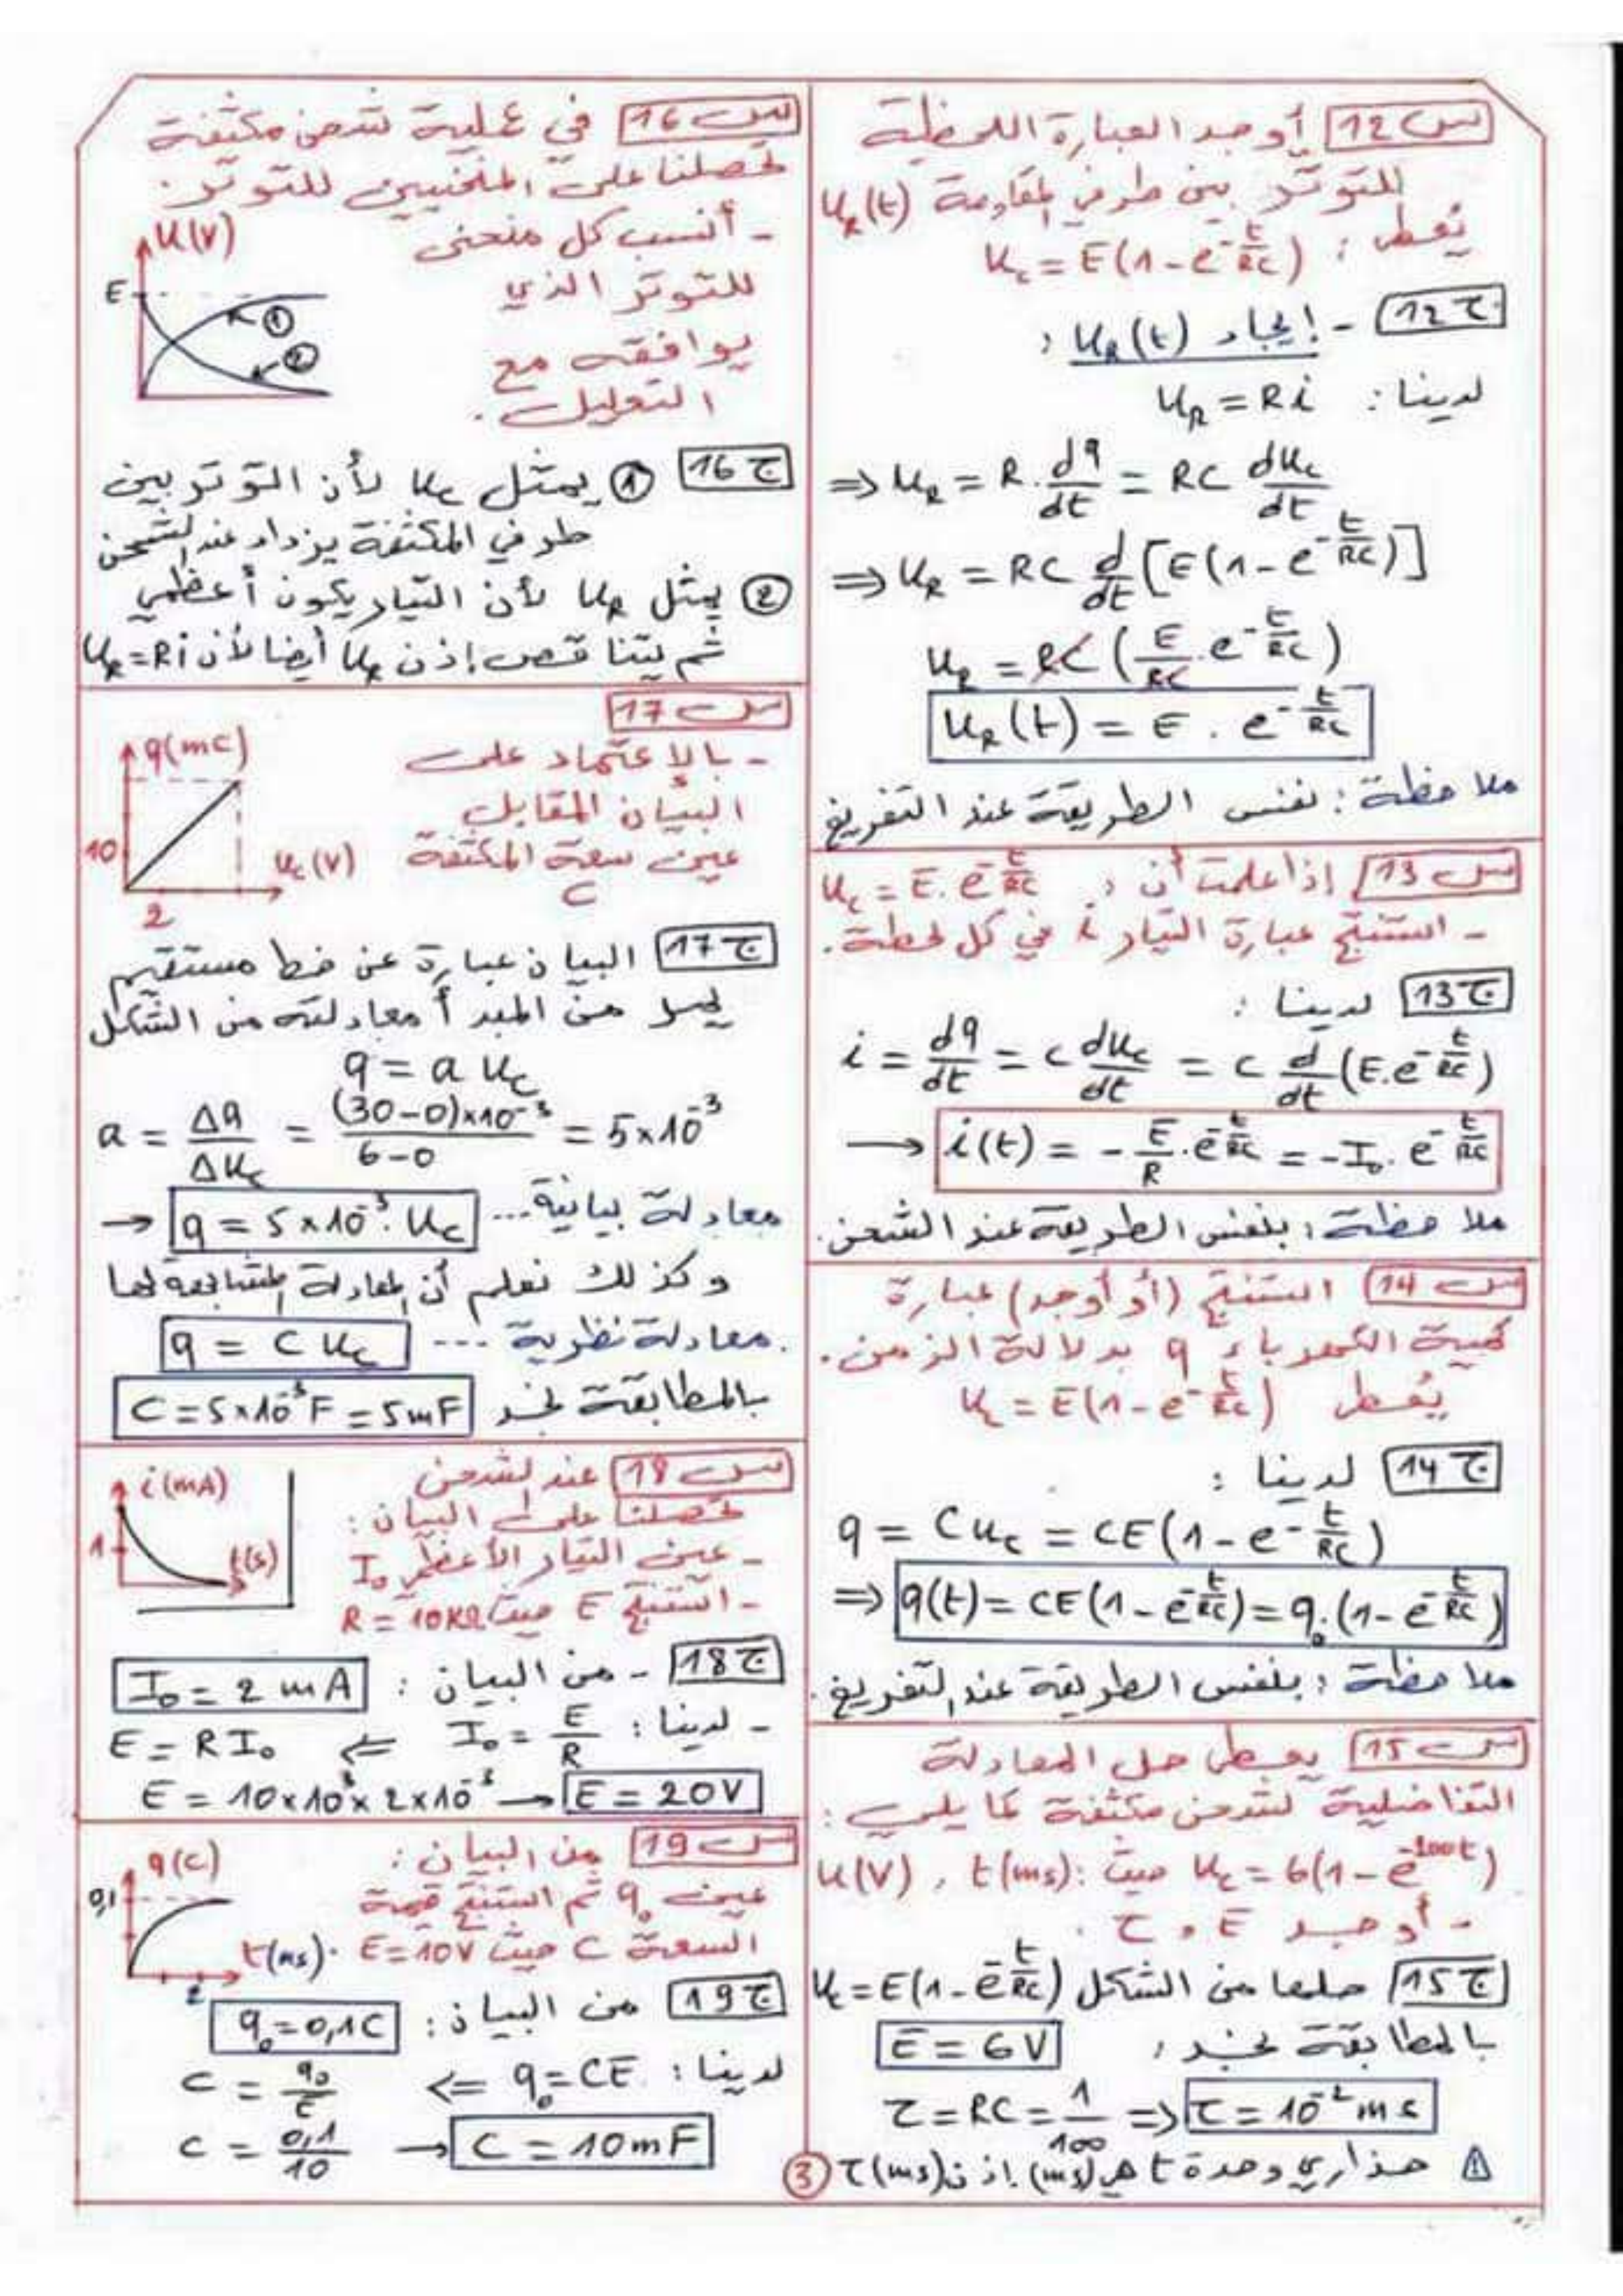 س12 أوجد العبارة اللحظية
للتوتر بين طرفي المقاومة u_R(t)
يُعطى : u_c = E(1-e^{-t/RC})
ج12 - إيجاد u_R(t) :
لدينا : u_R = Ri
⇒ u_R = R . dq/dt = RC du_c/dt
⇒ u_R = RC d/dt [E(1-e^{-t/RC})]
u_R = RC (E/RC . e^{-t/RC})
u_R(t) = E . e^{-t/RC}
ملاحظة : نفس الطريقة عند التفريغ
س13 إذا علمت أن : u_c = E.e^{-t/RC}
- استنتج عبارة التيار i في كل لحظة.
ج13 لدينا :
i = dq/dt = C du_c/dt = C d/dt (E.e^{-t/RC})
→ i(t) = -E/R . e^{-t/RC} = -I₀ . e^{-t/RC}
ملاحظة : بنفس الطريقة عند الشحن.
س14 استنتج (أو أوجد) عبارة
كمية الكهرباء q بدلالة الزمن.
يُعطى u_c = E(1-e^{-t/RC})
ج14 لدينا :
q = Cu_c = CE(1-e^{-t/RC})
⇒ q(t) = CE(1-e^{-t/RC}) = q₀.(1-e^{-t/RC})
ملاحظة : بنفس الطريقة عند التفريغ.
س15 يعطى حل المعادلة
التفاضلية لشحن مكثفة كما يلي :
u_c = 6(1-e^{-100t}) حيث : t(ms) , u(V)
- أوجد E و τ .
ج15 حلها من الشكل u_c = E(1-e^{-t/RC})
بالمطابقة نجد : E = 6V
τ = RC = 1/100 ⇒ τ = 10⁻² ms
⚠ حذاري وحدة t هي (ms) إذن τ(ms)
س16 في عملية شحن مكثفة
تحصلنا على المنحنيين للتوتر.
- أنسب كل منحنى
للتوتر الذي
يوافقه مع
التعليل.
u(V)
E
①
②
ج16 ① يمثل u_c لأن التوتر بين
طرفي المكثفة يزداد عند الشحن
② يمثل u_R لأن التيار يكون أعظمي
ثم يتناقص إذن u_R أيضا لأن u_R=Ri
س17
- بالإعتماد على
البيان المقابل
عين سعة المكثفة
C
q(mC)
10
u_c(V)
2
ج17 البيان عبارة عن خط مستقيم
يمر من المبدأ معادلته من الشكل
q = a u_c
a = Δq/Δu_c = (30-0)×10⁻³/6-0 = 5×10⁻³
معادلة بيانية... q = 5×10⁻³. u_c ←
وكذلك نعلم أن المعادلة المشابهة لها
معادلة نظرية ... q = C u_c
بالمطابقة نجد C = 5×10⁻³F = 5mF
س18 عند شحن
تحصلنا على البيان :
- عين التيار الأعظمي I₀
- استنتج E حيث R = 10KΩ
i(mA)
1
t(s)
ج18 - من البيان : I₀ = 2 mA
- لدينا : I₀ = E/R ⇐ E = RI₀
E = 10×10³×2×10⁻³ → E = 20V
س19 من البيان :
عين q₀ ثم استنتج قيمة
السعة C حيث E=10V .
q(C)
0,1
t(ms)
2
ج19 من البيان : q₀ = 0,1C
لدينا : q₀ = CE ⇐ C = q₀/E
C = 0,1/10 → C = 10mF
3